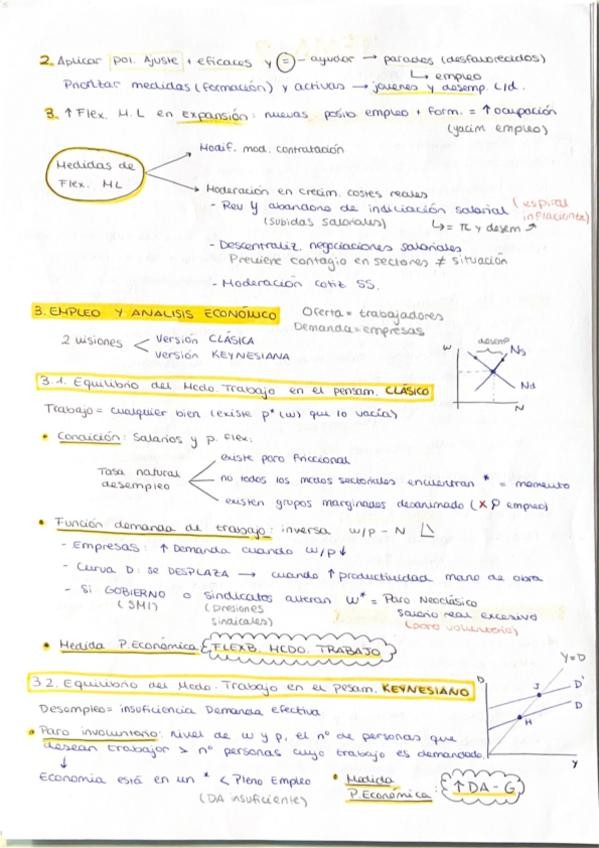 2. Aplicar pol. Ajuste + eficaces y (=) - ayudar → parados (desfavorecidos)
↳ empleo
Priorizar medidas (formación) y activas → jovenes y desemp. L/d.
3. ↑ Flex. M.L en expansión: nuevas posib empleo + form. = ↑ ocupación
(yacim empleo)
Medidas de Flex. ML
Modif. mod. contratación
Moderación en crecim. costes reales
- Rev y abandono de indiciación salarial (espiral inflacionista)
(subidas salariales) ↳ = π y desem ↗
- Descentraliz. negociaciones salariales
Previene contagio en sectores ≠ situación
- Moderación cotiz SS.
3. EMPLEO Y ANALISIS ECONÓMICO
Oferta = trabajadores
Demanda = empresas
2 visiones < versión CLÁSICA
versión KEYNESIANA
W desemp Ns
Nd
N
3.1. Equilibrio del Mcdo. Trabajo en el pensam. CLÁSICO
Trabajo = cualquier bien (existe p* (w) que lo vacía)
• Condición: Salarios y p. Flex:
Tasa natural desempleo
existe paro friccional
no todos los mcdos sectoriales encuentran * = momento
existen grupos marginados desanimado (x empleo)
• Función demanda de trabajo: inversa w/p - N
- Empresas: ↑ Demanda cuando w/p ↓
- Curva D: se DESPLAZA → cuando ↑ productividad mano de obra
- Si GOBIERNO o sindicatos alteran w* = Paro Neoclásico
(SMI) (Presiones sindicales) salario real excesivo
(paro voluntario)
• Medida P. Económica: FLEXB. MCDO. TRABAJO
3.2. Equilibrio del Mcdo. Trabajo en el Pesam. KEYNESIANO
Desempleo = insuficiencia Demanda efectiva
D Y=D
J D'
D
H
Y
• Paro involuntario: nivel de w y p, el nº de personas que
desean trabajar > nº personas cuyo trabajo es demandado.
↓
Economia está en un * < Pleno Empleo
(DA insuficiente)
• Medida P. Económica: ↑DA - G